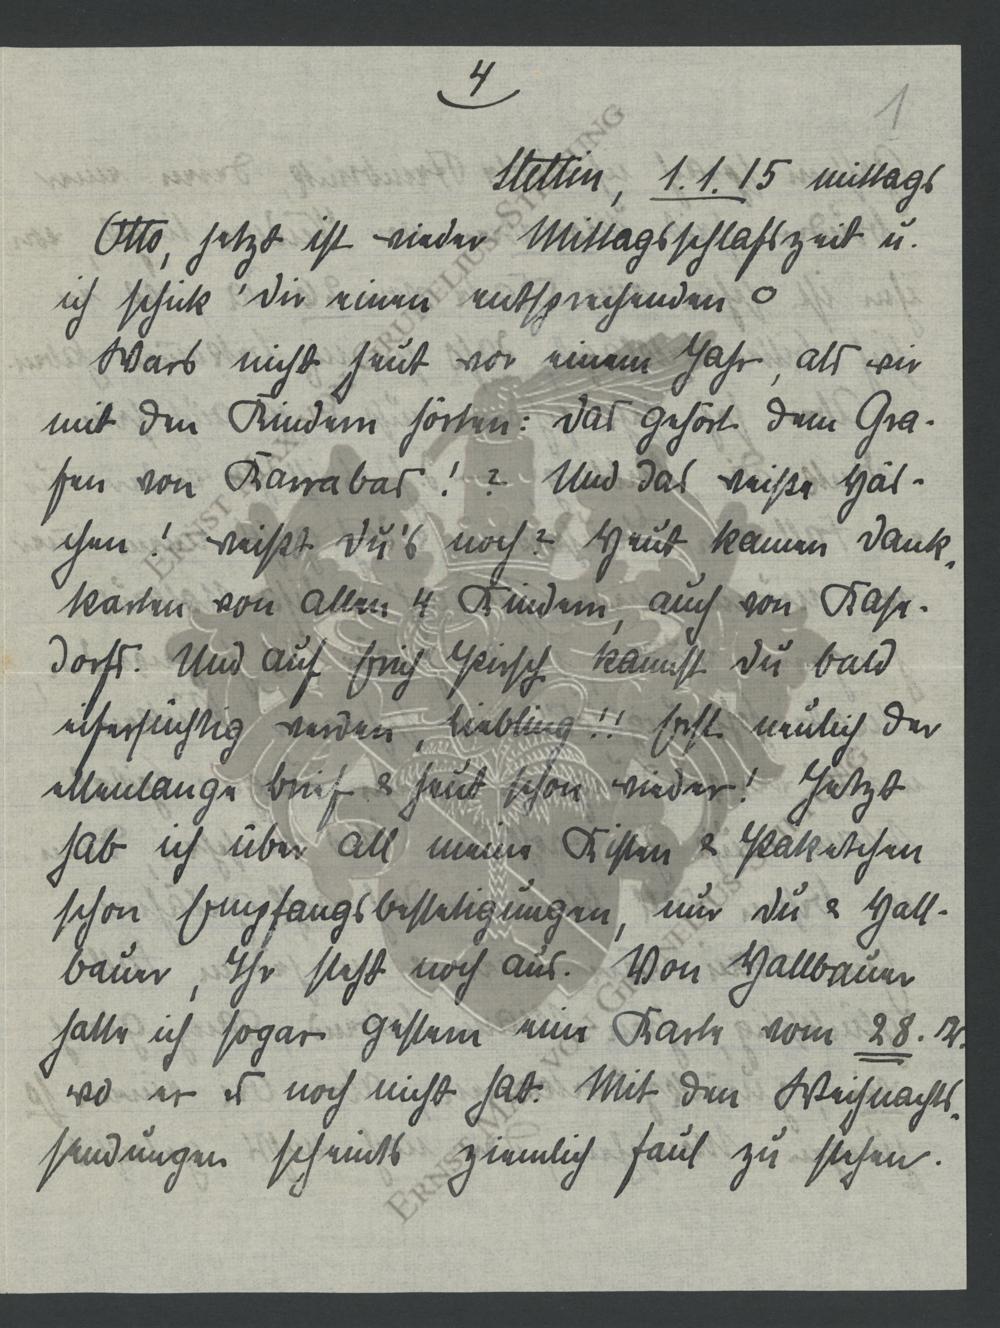 4
1
Stettin, 1.1.15 mittags
Otto, jetzt ist wieder Mittagsschlafszeit u.
ich schick' dir einen entsprechenden o
Wars nicht heut vor einem Jahr, als wir
mit den Kindern hörten: das gehört dem Gra-
fen von Karrabas! ? Und das weiße Häs-
chen! weißt du's noch? Heut kamen Dank-
karten von allen 4 Kindern, auch von Kase-
dorfs. Und auf Erich Hirsch kannst du bald
eifersüchtig werden, Liebling!! Erst neulich der
ellenlange brief & heut schon wieder! Jetzt
hab ich über all meine Kisten & Paketchen
schon Empfangsbestetigungen, nur du & Hall-
bauer, Ihr steht noch aus. Von Hallbauer
hatte ich sogar gestern eine Karte vom 28. 12.
wo er es noch nicht hat. Mit den Weihnachts-
sendungen scheints ziemlich faul zu stehen.
ERNST MAX VON GRUNELIUS-STIFTUNG
ERNST MAX VON GRUNELIUS-STIFTUNG